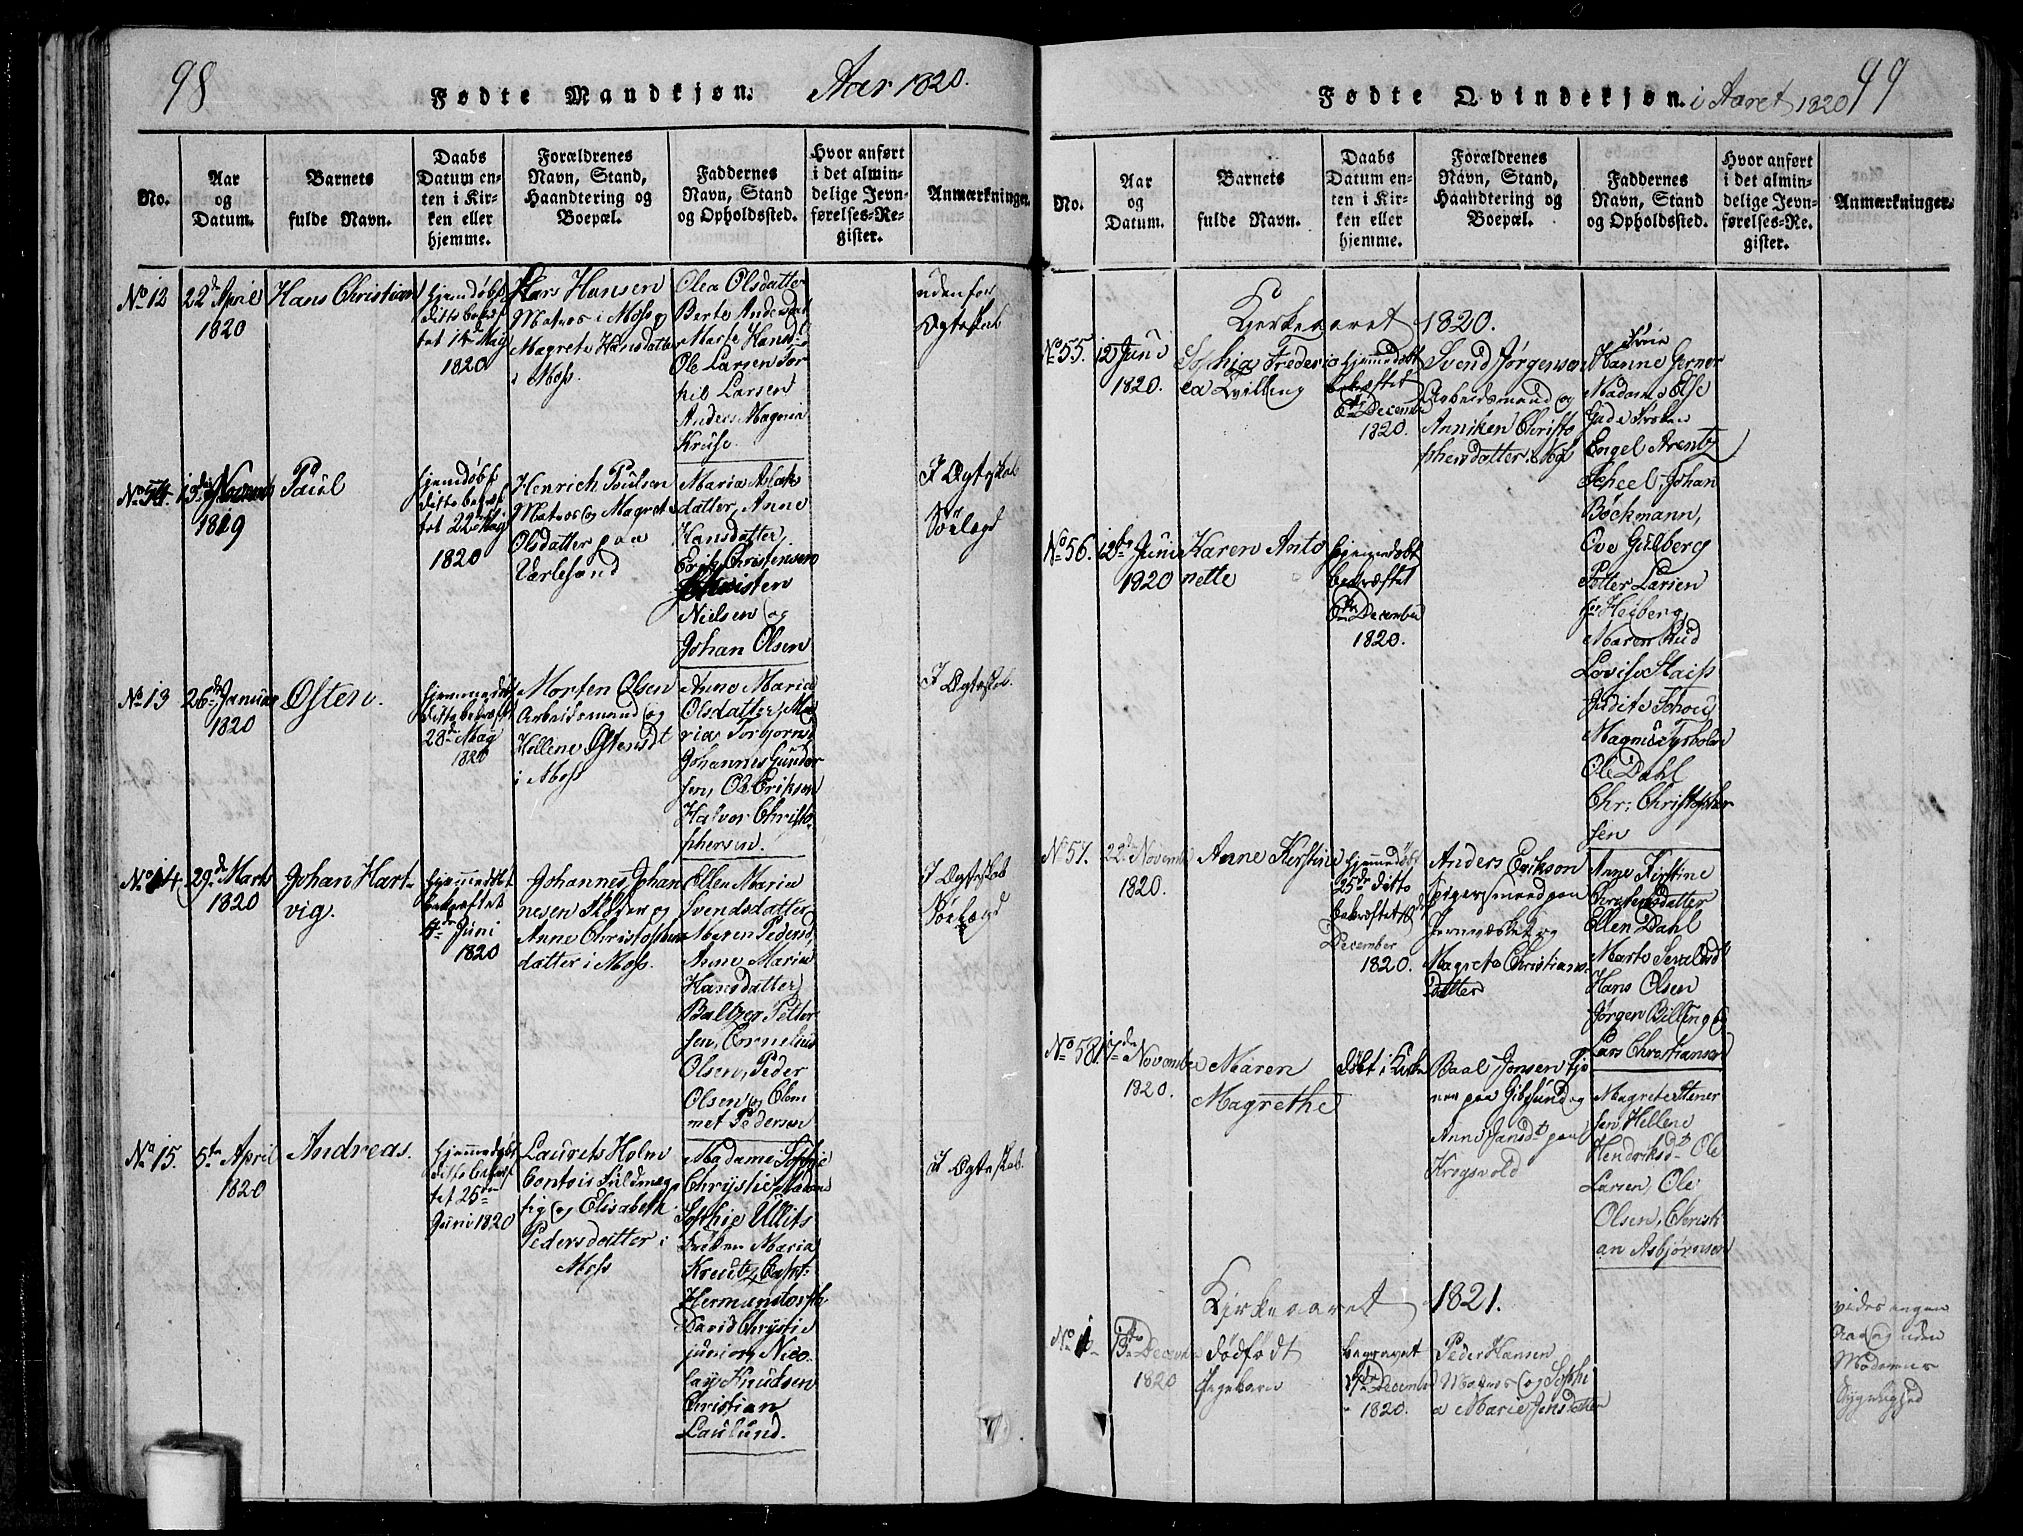 98
Fødte Mandkjøn. Aar 1820.
No.
Aar
og
Datum.
Barnets
fulde Navn.
Daabs
Datum en-
ten i Kir-
ken eller
hjemme.
Forældrenes
Navn, Stand,
Haandtering og
Boepæl.
Faddernes
Navn, Stand
og Opholdssted.
Hvor anført
i det almin-
delige Jevn-
førelses-Re-
gister.
Anmærkninger.
No 12
22de April
1820
Hans Christian
hjemdøbt
ditto bekræf
tet 14de Maj
1820
Lars Hansen
Matros i Moss og
Magrete Hansdatter
i Moss.
Olea Olsdatter
Berte Andersdat
Marte Hansd
Ole Larsen Tor
kil Larsen
Anders Magnus
Kruse.
udenfor
Ægteskab
No 54.
13de Novemb
1819
Paul
hjemdøbt
ditto bekræf
tet 22de Maj
1820
Henrich Poulsen
Matros og Magrete
Olsdatter paa
Værlesand
Maria Aslaks
datter, Anne
Hansdatter,
Erik Christensen
Christen
Nielsen og
Johan Olsen
I Ægteskab
Søelægd
No 13
26de Januar
1820
Østen.
hjemmedøbt
ditto bekræft
28de Maj
1820
Morten Olsen
Arbeidsmand og
Hellene Østensdt
i Moss
Anne Maria
Olsdatter, Ma
rias Torbjørnsd
Johannes Gunder
sen, Ole Eriksen
Halvor Christo-
phersen.
I Ægteskab.
No 14.
29de Marts
1820
Johan Hart-
vig.
hjemmedøbt
bekræftet
4de Juni
1820
Johannes Johan
nesen og
Anne Christophers
datter i Moss.
Ellen Maria
Svendsdatter
Maren Pedersd,
Anne Maria
Hansdatter,
Baltzer Petter
sen, Cornelius
Olsen, Peder
Olsen og Clem
met Pedersen
I Ægteskab
Søelægd
No 15.
5te April
1820
Andreas.
hjemmedøbt
ditto bekræf
tet 25de
Juni 1820
Laurets Holm
Contoir Fuldmæg
tig og Elisabeth
Pedersdatter i
Moss
Madame Sophie
Chrystie Madame
Sophie Ullits
Frøken Maria
Kreutz Capt:
Hermanstorff
David Chrystie
junior, Nico
laj Knudsen
Christian
Laulund.
I Ægteskab.
Fødte Qvindekjøn. i Aaret 1820
99
No.
Aar
og
Datum.
Barnets
fulde Navn.
Daabs
Datum en-
ten i Kir-
ken eller
hjemme.
Forældrenes
Navn, Stand,
Haandtering og
Boepæl.
Faddernes
Navn, Stand
og Opholdssted.
Hvor anført
i det almin-
delige Jevn-
førelses-Re-
gister.
Anmærkninger.
Kirkeaaret 1820.
No 55.
12 Juni
1820.
Sophia Frederi
ca Tvilling
hjemmedøbt
bekræftet
6te December
1820.
Svend Jørgensen
Arbeidsmand og
Anniken Christo
phersdatter. Moss
Hanne Gerner
Madame Else
Gude Frøken
Engel Arentz
Scheel, Johan
Bøckmann,
Ove Gulberg
Petter Larsen
for Heiberg
Maren Rud
Lovise Staiss
Magnus
Ole Dahl
Chr: Christopher
sen
No 56.
12te Juni
1820
Karen Anto
nette
hjemmedøbt
bekræftet
6te December
1820.
No 57.
22de Novemb
1820.
Anne Kirstine
hjemmedøbt
25de ditto
bekræftet
December
1820.
Anders Erikson
Spigersmed paa
Jernværket og
Magrete Christians-
datter
Anne Kirstine
Christensdatter
Ellen Dahl
Marte
Hans Olsen
Jørgen Billing og
Lars Christiansen
No 58.
17de November
1820.
Maren
Magrethe
døbt i Kirke
Baal Jonsen Tje
ner paa Gibsund og
Anne Jansdt paa
Kragsvold
Magrete Stener
sen Hellene
Hendriksdt Ole
Larsen, Ole
Olsen, Christi
an Asbjørnsen
Kirkeaaret 1821.
No 1
13de December
1820
dødfødt
Pigebarn
begravet
17de December
1820.
Peder Hansen
Matros og Sophi
a Marie Jensdatter
vides ingen
Aarsag uden
Moderens
Sygelighed